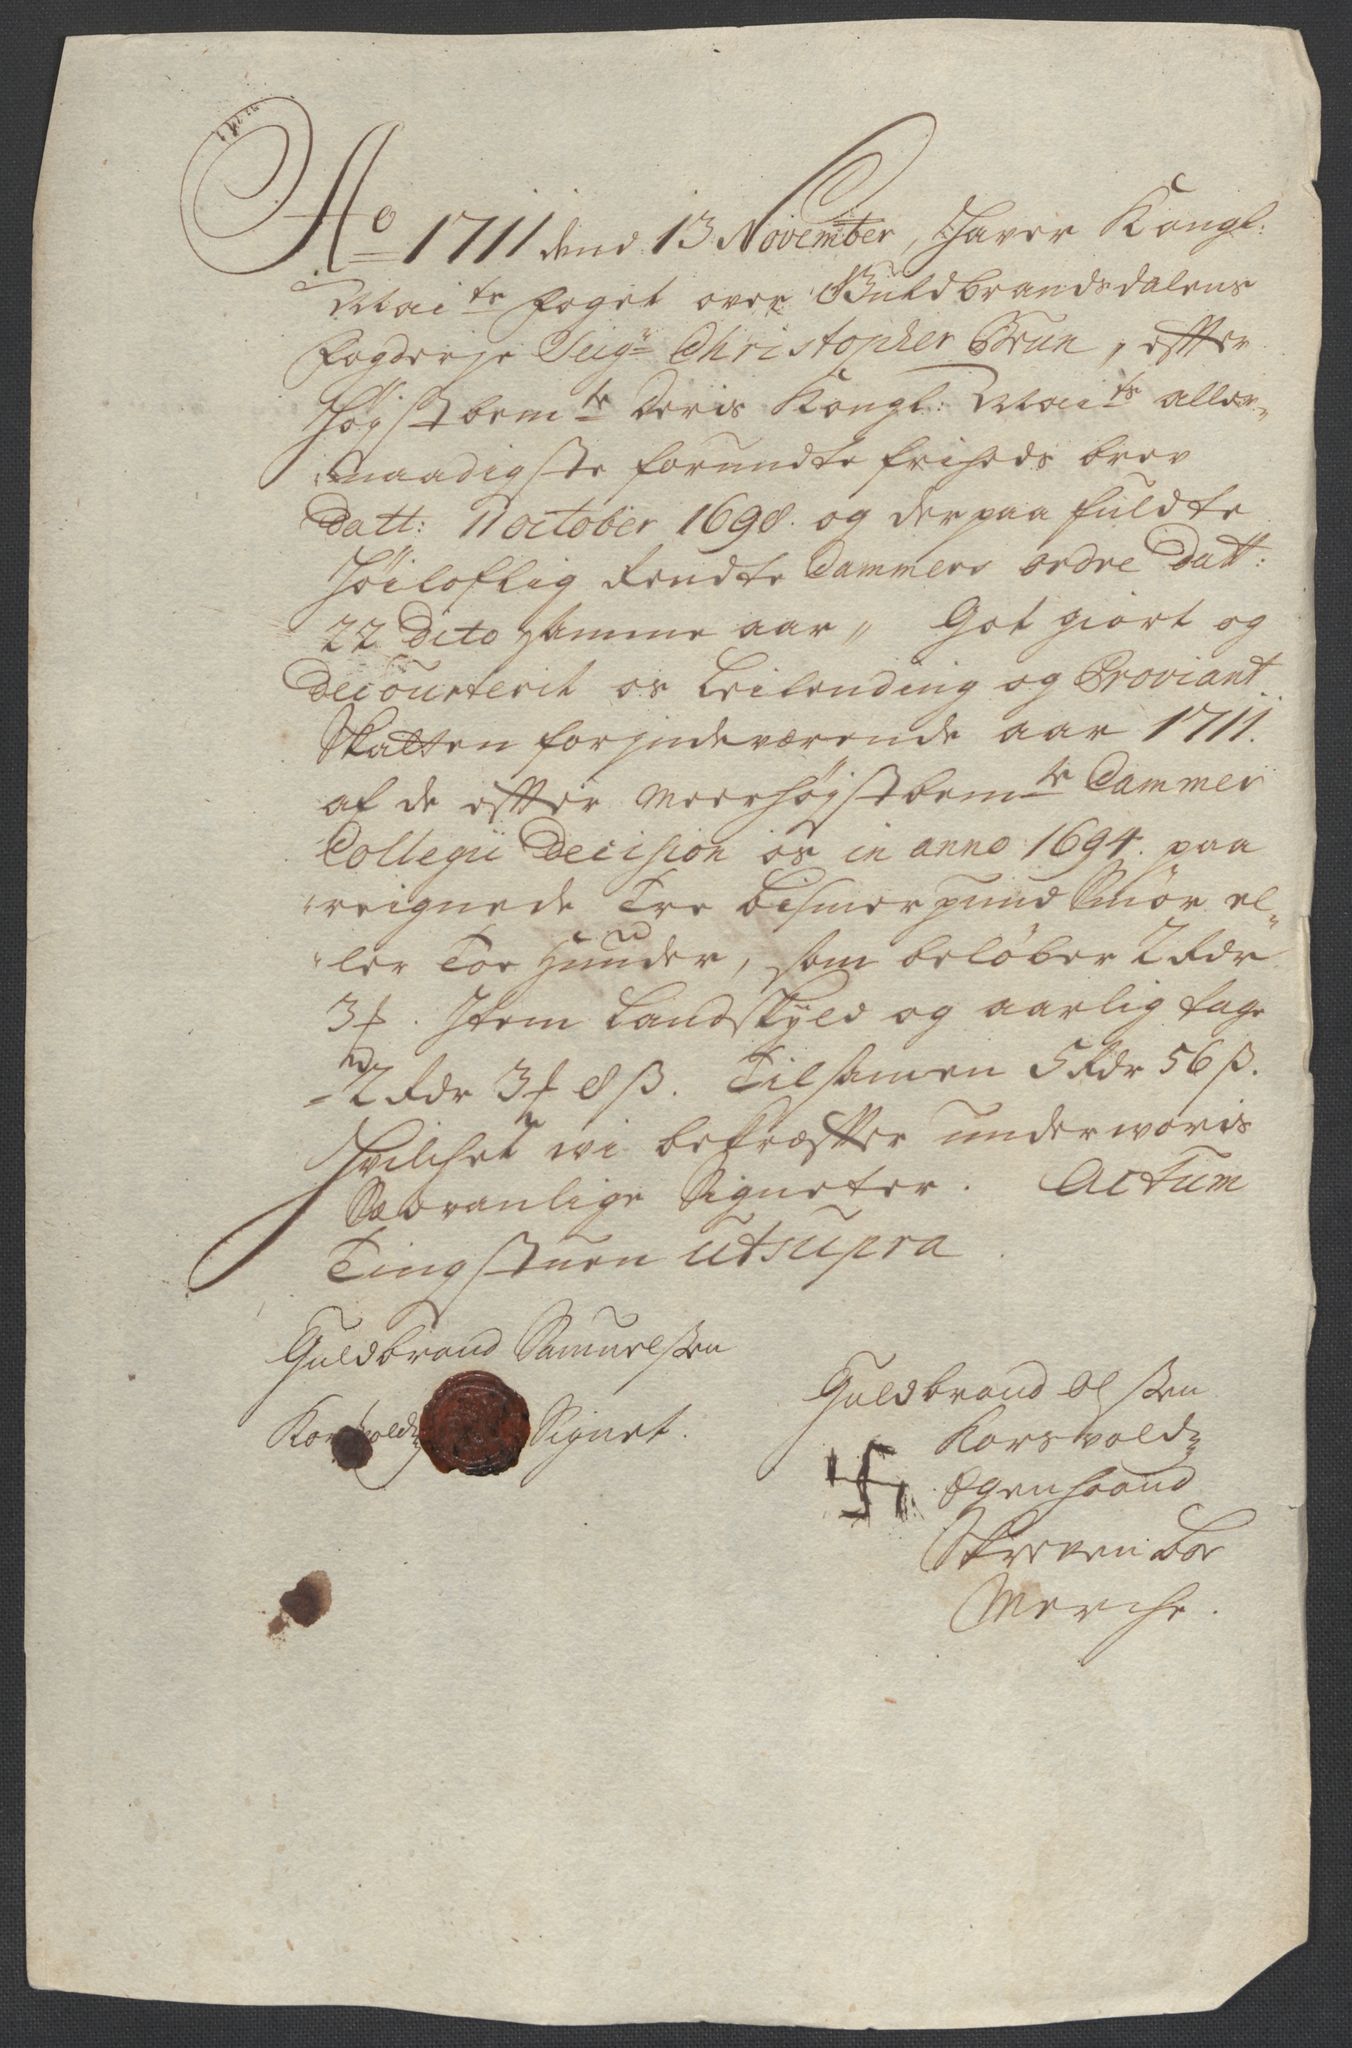 Ao 1711 dend 13 November, Haver Kongl:
Mai:te foget over Guldbrandsdalens
fogderje Seigr Christopher Brun, effter
høgstbem:te deris Kongl: Mai:ts aller-
naadigste forundte friheds brev
Datt: 11 october 1698. og derpaa fuldte
høiloflig Rendte Cammers ordre Datt:
22 Dito samme aar, Got giort og
Decourterit os Leilending og Proviant
Skatten for indeværende aar 1711.
af de effter meerhøgstbem:te Cammer
Collegii Decision os in anno 1694. paa
reignede Tre bismerpund Smør el-
ler Toe Huuder, som beløber 2 Rdr
3 ƒ. Item Landskyld og aarlig tage
2 Rdr 3 ƒ 8 ß. Tilsamen 5 Rdr 56 ß.
hvilchet wi bekræffter under woris
Sædvanlige Signeter. Actum
Tingstuen ut supra.
Guldbrand Samuelssen
Signet.
Guldbrand Olssen
Korsvold
Egenhaand
Skreven boe
Merche.